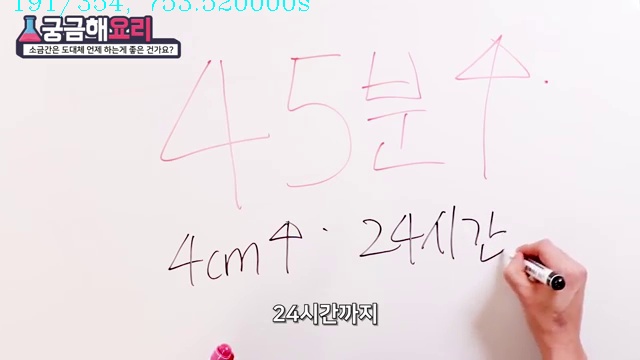 191/354, 753.520000s
궁금해요리
소금간은 도대체 언제 하는게 좋은 건가요?
45분↑.
4cm↑. 24시간
24시간까지